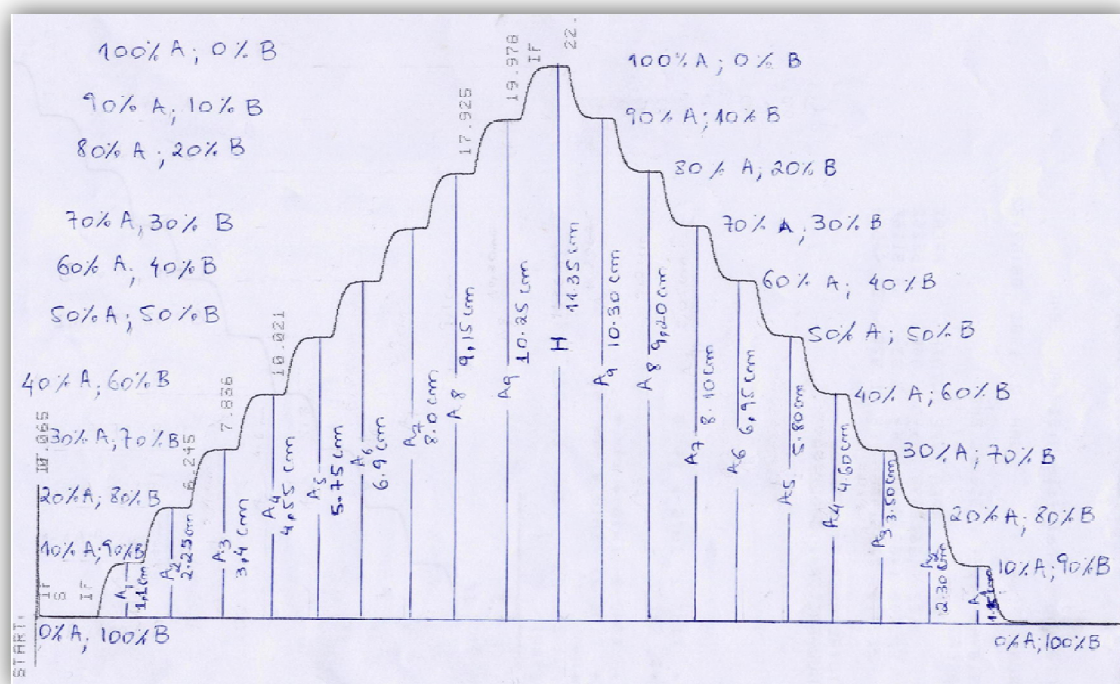 100% A; 0% B
90% A; 10% B
80% A; 20% B
70% A; 30% B
60% A; 40% B
50% A; 50% B
40% A; 60% B
30% A; 70% B
20% A; 80% B
10% A; 90% B
0% A; 100% B
START.
IF
S
IF
6.245
7.836
10.021
17.925
19.978
IF
22.
A1
1,1 cm
A2
2.25 cm
A3
3,4 cm
A4
4,55 cm
A5
5.75 cm
A6
6.9 cm
A7
8.0 cm
A8
9,15 cm
A9
10.25 cm
H
11.35 cm
A9 10.30 cm
A8 9,20 cm
A7 8.10 cm
A6 6,95 cm
A5 5.80 cm
A4 4.60 cm
A3 3.50 cm
A2
2.30 cm
A1
100% A; 0% B
90% A; 10% B
80% A; 20% B
70% A; 30% B
60% A; 40% B
50% A; 50% B
40% A; 60% B
30% A; 70% B
20% A; 80% B
10% A; 90% B
0% A; 100% B